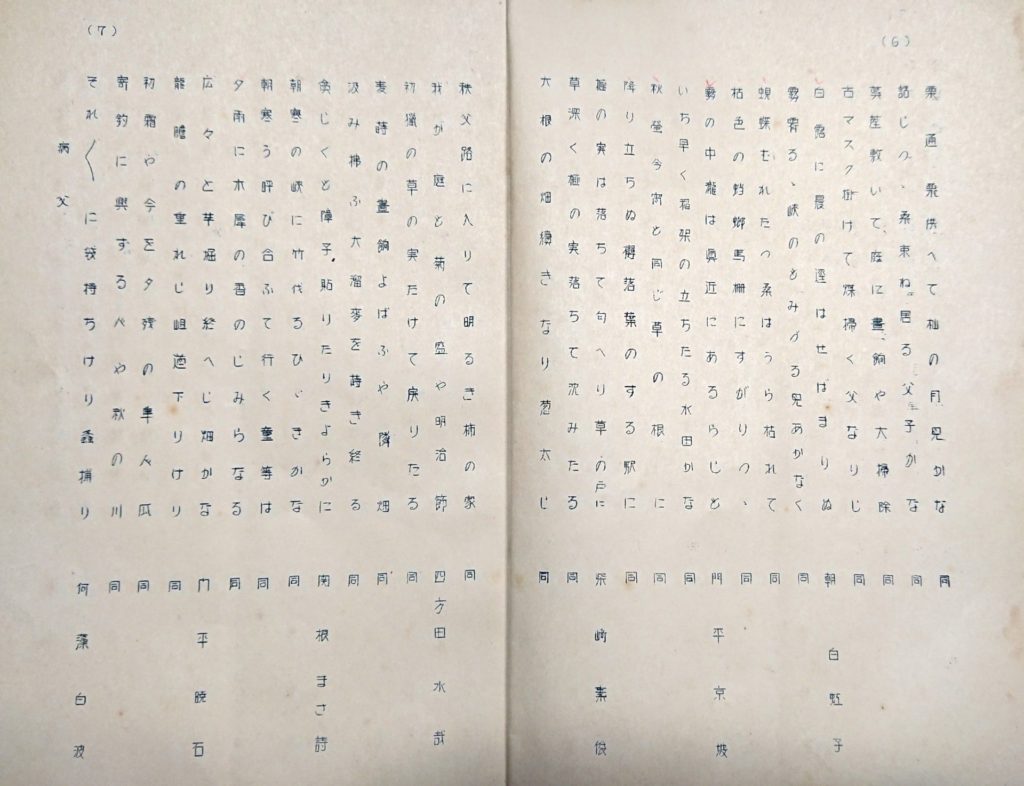 (6)
栗通乗供へて杣の月見かな 同
話しつゝ桑束ね居る父子かな 同
茣蓙敷いて庭に晝餉や大掃除 同
古マスク掛けて煤掃く父なりし 同
白露に晨の逕はせばまりぬ 朝白虹子
雲霽るゝ峡のとみかる兒あかなく 同
蜆蝶むれたつ桑はうら枯れて 同
枯色の蟷螂馬柵にすがりつゝ 同
霧の中瀧は眞近にあるらしと 門平京
いち早く稲架の立ちたる水田かな 同
秋螢今宵と同じ草の根に 同
降り立ちぬ櫻落葉のする駅に 同
榧の実は落ちて匂へり草の戸に 柴崎
草深く榧の実落ちて沈みたる 同
大根の畑續きなり葱太し 同
(7)
秩父路に入りて明るき柿の家 同
我が庭と菊の盛や明治節 四方田水哉
初獵の草の実たけて戻りたる 同
麦蒔の晝餉よばふや隣畑 同
汲み揚ふ大溜麥を蒔き終る 同
貧しくと障子貼りたりきよらかに 関根まさ詩
朝寒の峡に竹伐るひゞきかな 同
朝寒う呼び合ふて行く童等は 同
夕雨に木犀の香のしみらなる 同
広々と芋堀り終へし畑かな 门平暁石
龍膽の重れし岨道下りけり 同
初霜や今を夕残の隼人瓜 同
寄釣に興ずるべや秋の川 同
それ〱に袋持ちけり螽捕り 何藻白波
病父